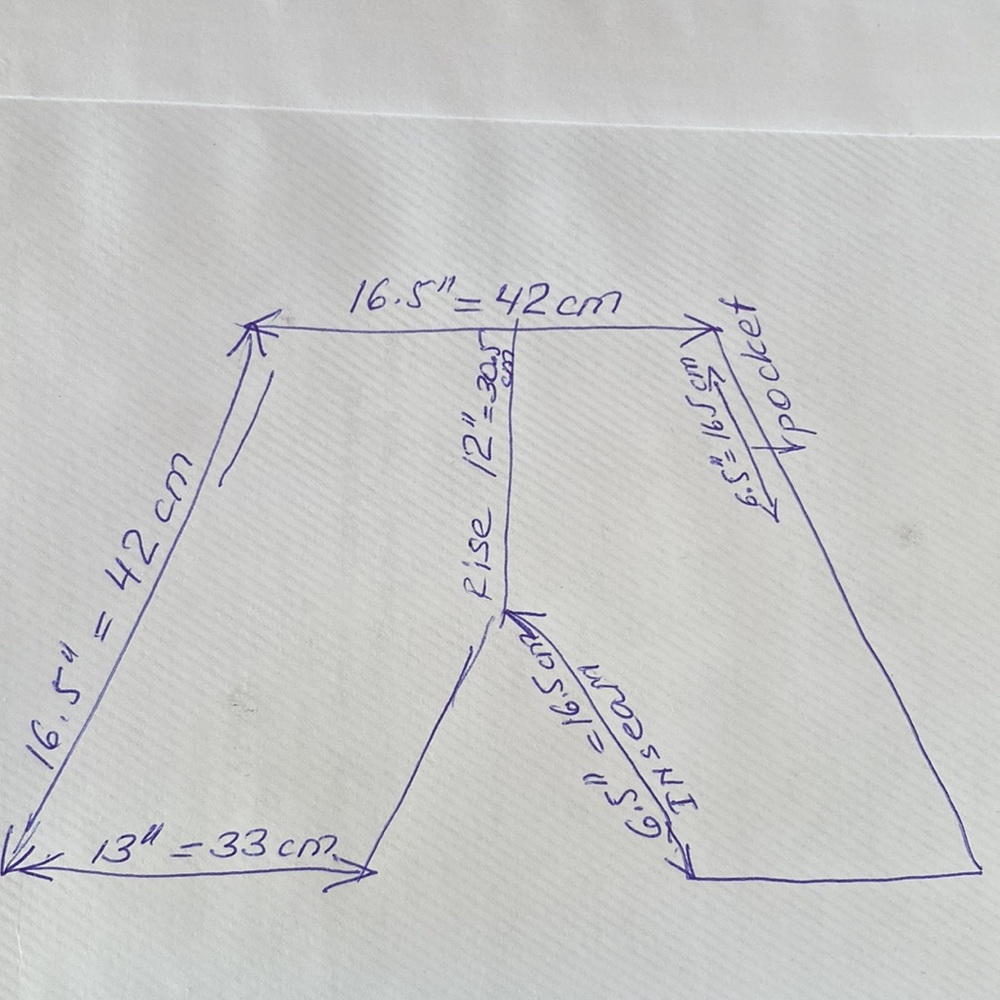 16.5" = 42 cm
pocket
6.5" = 16.5 cm
Rise 12" = 30.5 cm
16.5" = 42 cm
6.5" = 16.5 cm
Inseam
13" = 33 cm